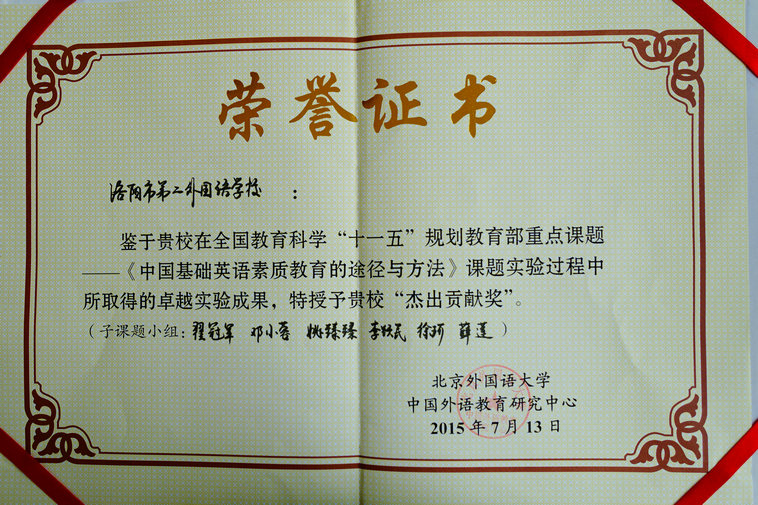 荣誉证书
洛阳市第二外国语学校：
鉴于贵校在全国教育科学“十一五”规划教育部重点课题
——《中国基础英语素质教育的途径与方法》课题实验过程中
所取得的卓越实验成果，特授予贵校“杰出贡献奖”。
（子课题小组：翟冠军 邓小 姚臻臻 李 民 徐珂 薛莲）
北京外国语大学
中国外语教育研究中心
2015年7月13日